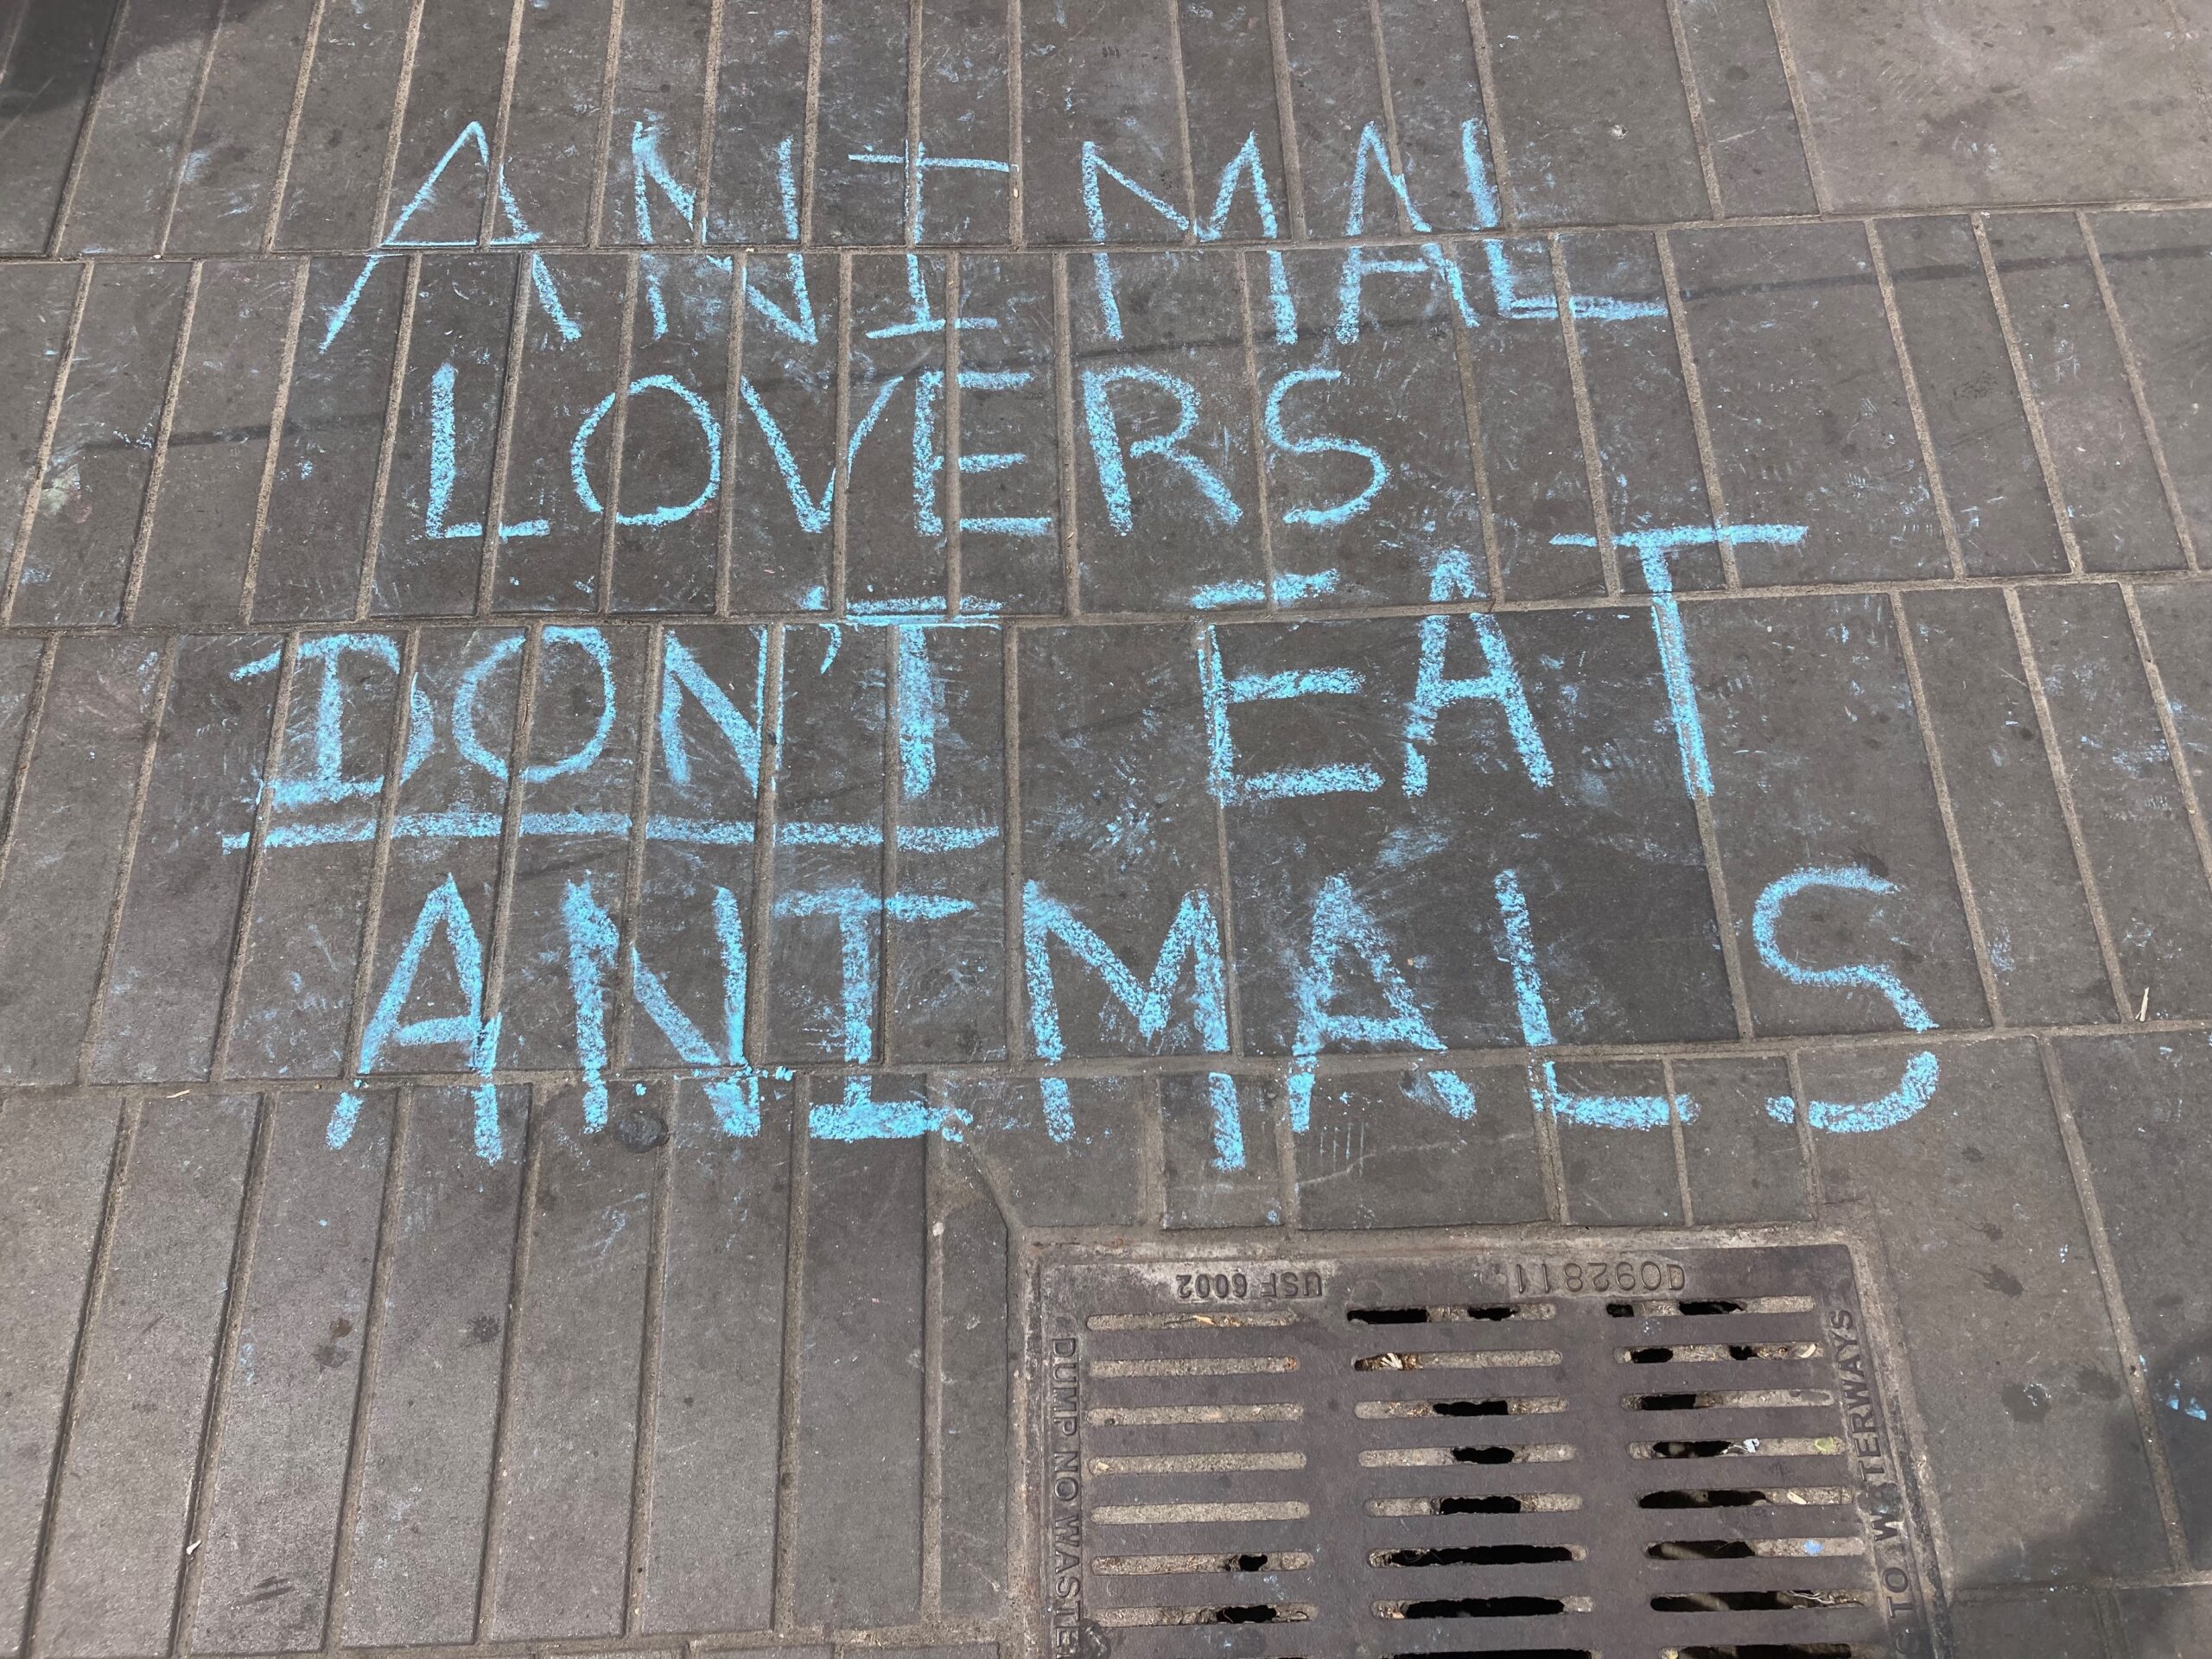 ANIMAL
LOVERS
DON'T EAT
ANIMALS
USF 6002
CO92811
DUMP NO WASTE
TO WATERWAYS